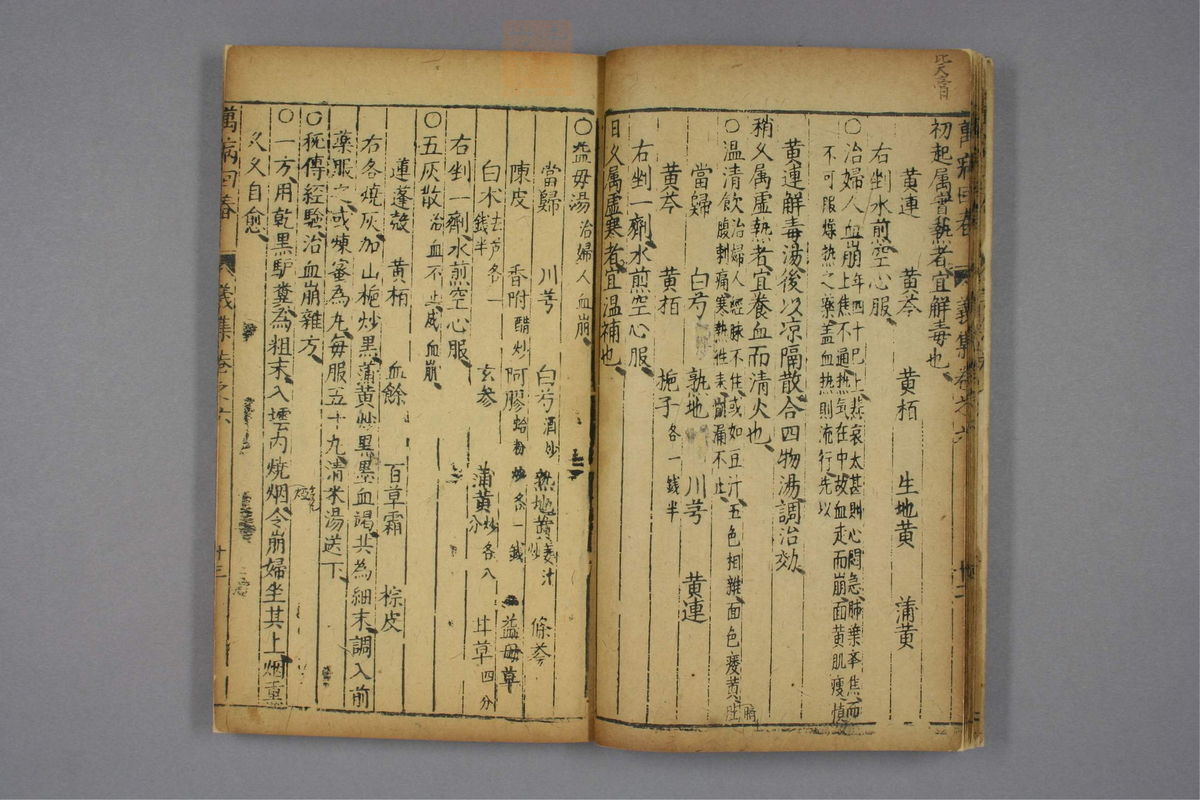 萬病回春 義集卷之六 十二
初起属實熱者宜解毒也
黄連 黄芩 黄栢 生地黄 蒲黄
右剉水煎空心服
○治婦人血崩年四十已上悲哀太甚則心悶急肺葉夲焦而
上焦不通熱氣在中故血走而崩面黄肌瘦慎
不可服燥熱之藥盖血熱則流行先以
黄連解毒湯後以凉隔散合四物湯調治効
稍久属虚熱者宜養血而清火也
○温清飲治婦人經脉不住或如豆汁五色相雜面色痿黄肚
腹刺痛寒熱徃来崩漏不止
當歸 白芍 熟地 川芎 黄連
黄芩 黄栢 梔子各一錢半
右剉一劑水煎空心服
日久属虚寒者宜温補也
○益毋湯治婦人血崩
當歸 川芎 白芍酒炒 熟地黄姜汁炒 條芩
陳皮 香附醋炒 阿膠蛤粉炒各一錢 益毋草
白术去芦各一錢半 玄参 蒲黄炒各八分 甘草四分
右剉一劑水煎空心服
○五灰散治血不止成血崩
蓮蓬殼 黄栢 血餘 百草霜 棕皮
右各燒灰加山梔炒黒蒲黄炒黒墨血竭共為細末調入前
藥服之或煉蜜為丸毎服五十丸清米湯送下
○秘傳經驗治血崩雜方
○一方用乾黒驴糞為粗末入壜内燒烟令崩婦坐其上烟熏
久久自愈
萬病回春 義集卷之六 十三